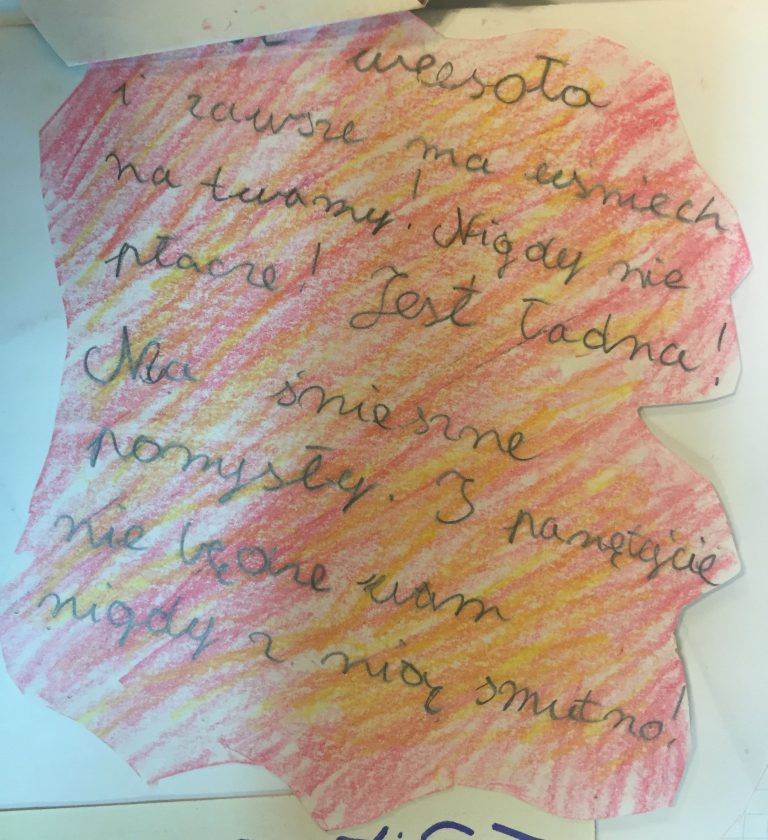 weesoła
i zawsze ma uśmiech
na twarzy! Nigdy nie
płacze! Jest ładna!
Ma śnieszne
pomysły. I pamętajcie
nie będze wam
nigdy z nią smutno!